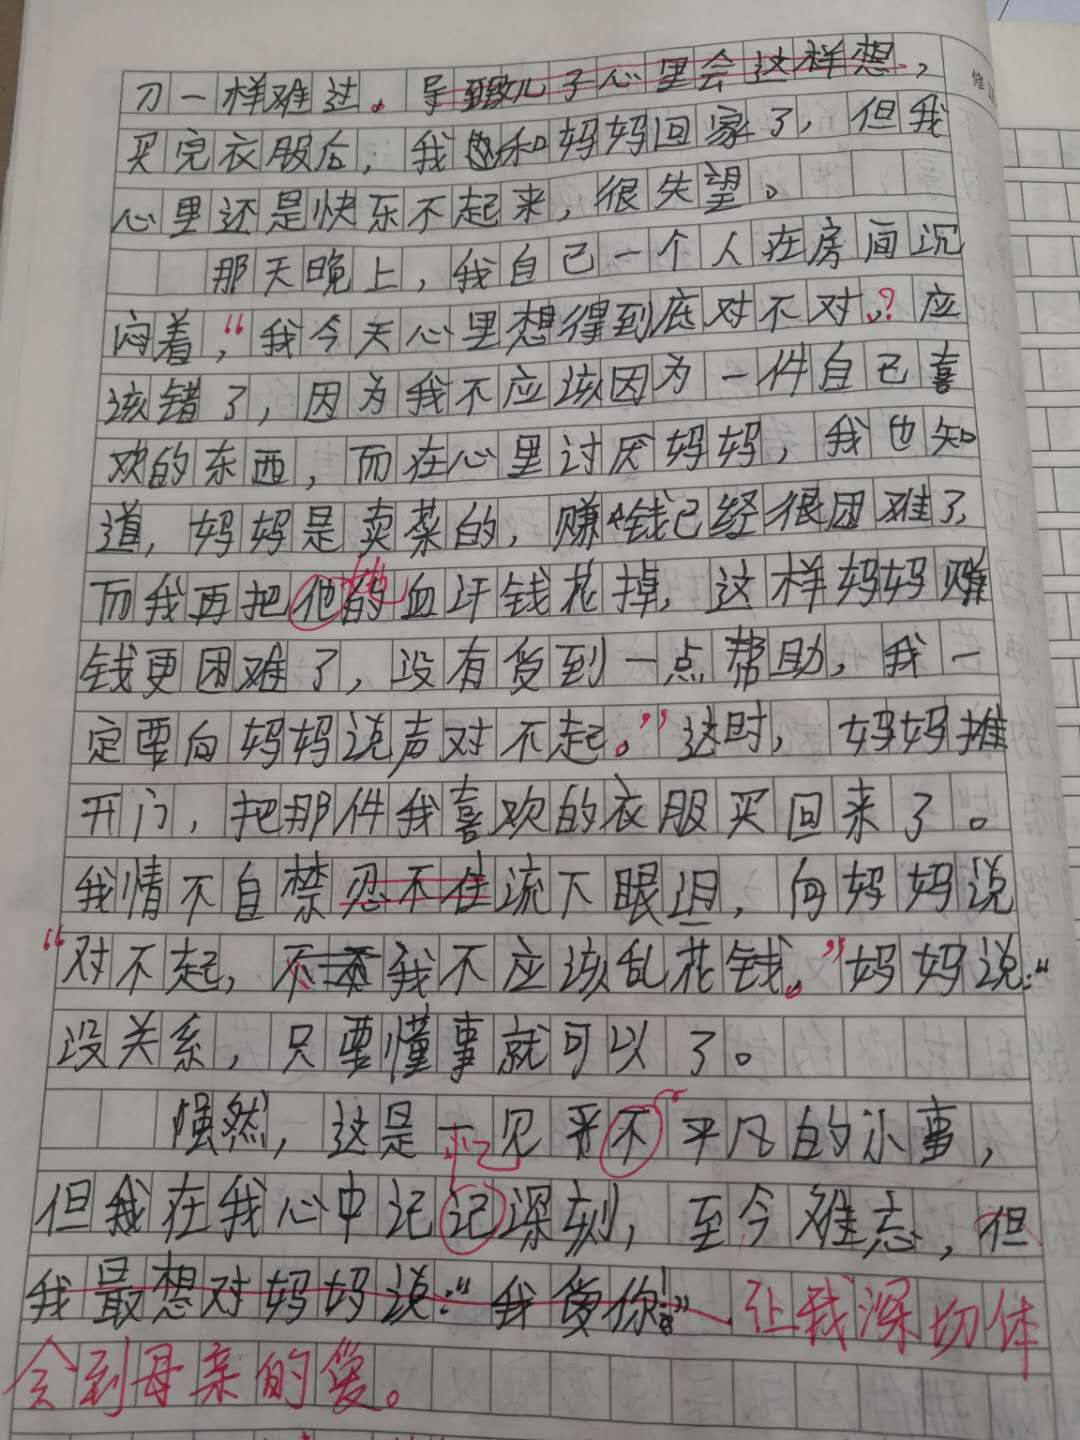 刀一样难过。导致儿子心里会这样想,
买完衣服后,我和妈妈回家了,但我
心里还是快乐不起来,很失望。
那天晚上,我自己一个人在房间沉
闷着,“我今天心里想得到底对不对?应
该错了,因为我不应该因为一件自己喜
欢的东西,而在心里讨厌妈妈,我也知
道,妈妈是卖菜的,赚钱已经很困难了,
而我再把他她的血汗钱花掉,这样妈妈赚
钱更困难了,没有受到一点帮助,我一
定要向妈妈说声对不起。”这时,妈妈推
开门,把那件我喜欢的衣服买回来了。
我情不自禁忍不住流下眼泪,向妈妈说
“对不起,我不应该乱花钱。”妈妈说:“
没关系,只要懂事就可以了。
虽然,这是一见平不平凡的小事,
但我在我心中记记忆深刻,至今难忘,但
我最想对妈妈说:“我爱你!”让我深切体
会到母亲的爱。